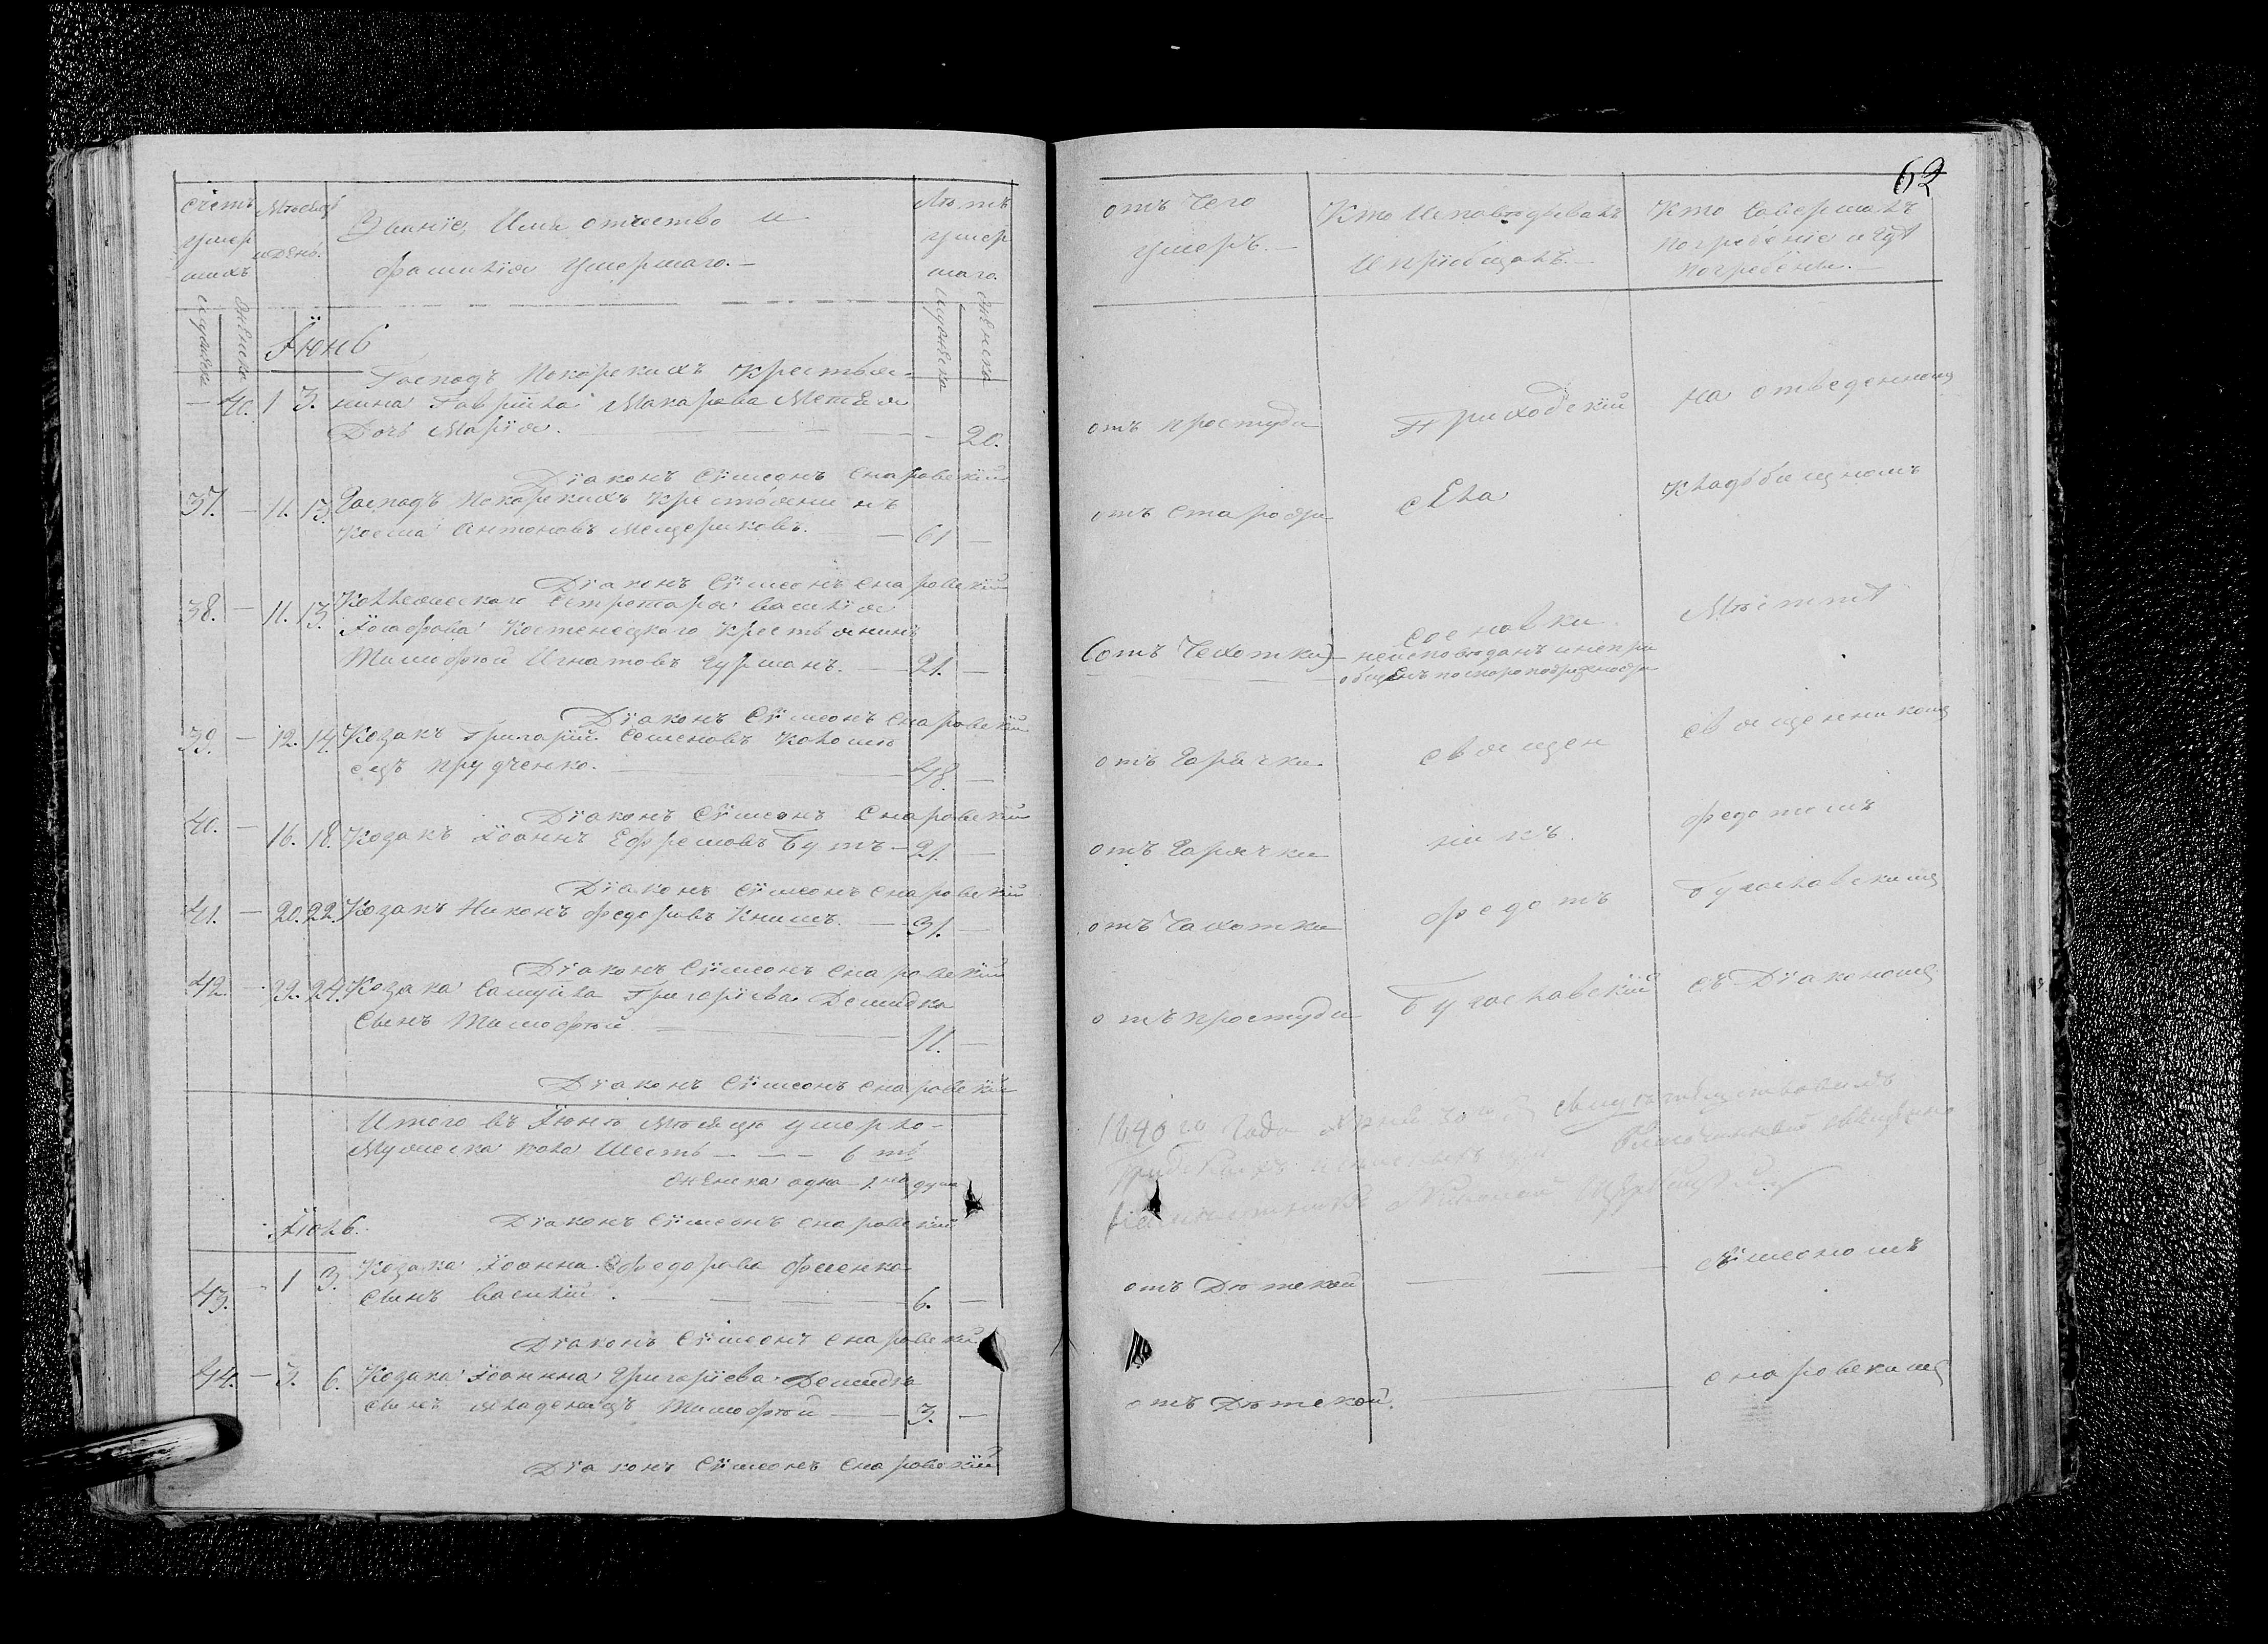 62
Счетъ умер шихъ
Мѣсяцъ и день.
Званіе, Имя отчество и
фамилія умершаго.—
Лѣтъ умер шаго.
мужеска
женска
мужеска
женска
отъ чего
умеръ.—
Кто Исповѣдывалъ
и пріобщалъ.—
Кто совершалъ
погребеніе и гдѣ
погребены.—
Іюнь
Господъ Покорскихъ крестья-
— 40. 1 3. нина Гавріила Макарова
Дочь Марія. — 20.
отъ простуди
Приходскій
на отведенномъ
Діаконъ Сѵмеонъ Снаровскій
37. — 11. 13. Господъ Покорскихъ крестьянинъ
Косма Антоновъ Мещериковъ. — 61 —
отъ старости
села
кладьбищномъ
Діаконъ Сѵмеонъ Снаровскій
38. — 11. 13. Коллежского Секретаря Василія
Костенецкого крестьянинъ
Тимофѣй Игнатовъ Гурманъ. — 21. —
(отъ Чехотки)
Сосновки.
неисповѣданъ и непри
общенъ по скоропостижности
Мѣстѣ
Діаконъ Сѵмеонъ Снаровскій
39. — 12. 14. Козакъ Григорій Семеновъ Коломѣ
ецъ Прудченко. — 48. —
отъ Горячки
священ
священникомъ
Діаконъ Сѵмеонъ Снаровскій
40. — 16. 18. Козакъ Іоаннъ Ефремовъ Бутъ — 21. —
отъ Горячки
никъ.
Федотомъ
Діаконъ Сѵмеонъ Снаровскій
41. — 20. 22. Козакъ Никонъ Федоровъ Книшъ. — 31. —
отъ Чахотки
Федотъ
Бугославскимъ
Діаконъ Сѵмеонъ Снаровскій
42. — 22. 24. Козака Самуила Григоріева Демидка
Сынъ Тимофѣй — 11. —
отъ простуди
Бугославскій
съ Діакономъ
Діаконъ Сѵмеонъ Снаровскій
Итого въ Іюнѣ мѣсяцѣ умерло-
Мужеска пола Шесть — — — 6 ть
женска одна — 1 на душа
1840 го Года
Діаконъ Сѵмеонъ Снаровскій
Іюль.
43. — 1 3. Козака Іоанна Федорова Фесенка
Сынъ Василій. — 6. —
отъ Дѣтской
Сѵмеономъ
Діаконъ Сѵмеонъ Снаровскій
44. — 3. 6. Козака Іоанна Григоріева Демидка
сынъ младенецъ Тимофѣй — 3. —
отъ Дѣтской.
Снаровскимъ
Діаконъ Сѵмеонъ Снаровскій